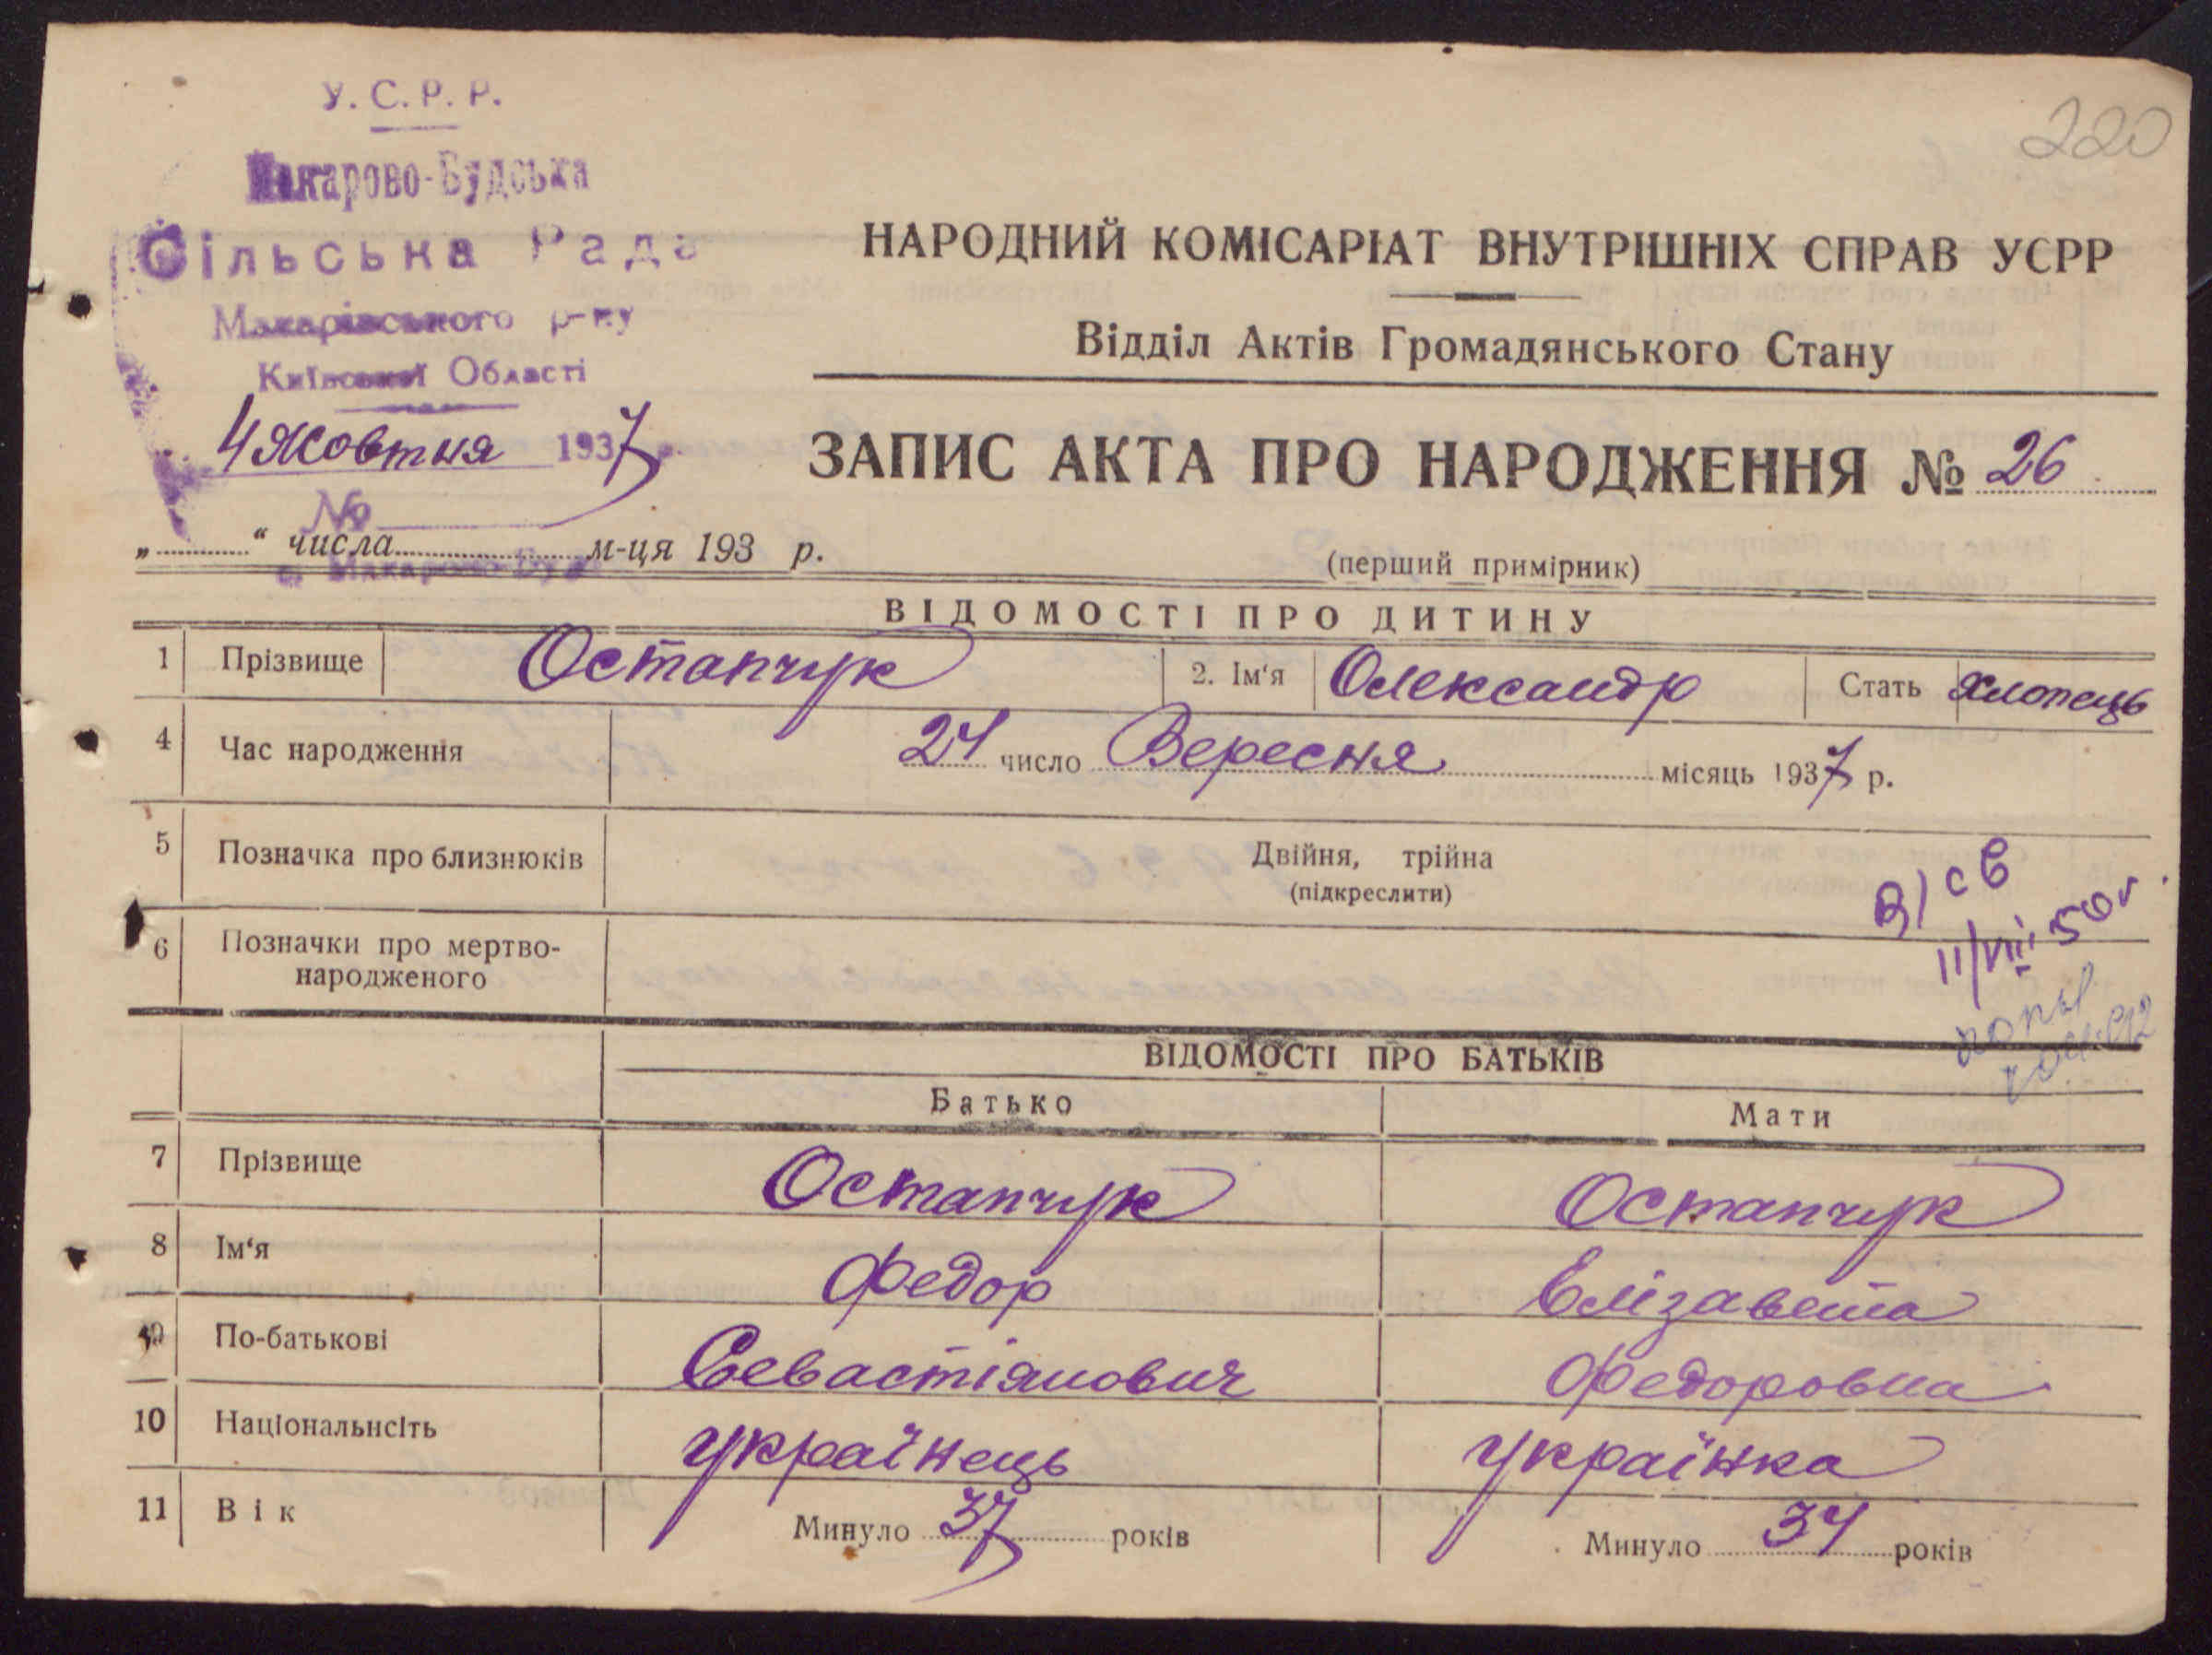 220
У. С. Р. Р.
Макарово-Будська
Сільська Рада
Макарівського р-ну
Київської Області
4 Жовтня 1937
№
с. Макарово-Буда
НАРОДНИЙ КОМІСАРІАТ ВНУТРІШНІХ СПРАВ УСРР
Відділ Актів Громадянського Стану
ЗАПИС АКТА ПРО НАРОДЖЕННЯ № 26
„ “ числа м-ця 193 р.
(перший примірник)
ВІДОМОСТІ ПРО ДИТИНУ
1 Прізвище Остапчук 2. Ім‘я Олександр Стать хлопець
4 Час народження 24 число Вересня місяць 1937 р.
5 Позначка про близнюків Двійня, трійна
(підкреслити)
В/ св
11/VIII 50 г.
6 Позначки про мертво-
народженого
ВІДОМОСТІ ПРО БАТЬКІВ
Батько Мати
7 Прізвище Остапчук Остапчук
8 Ім‘я Федор Єлізавета
9 По-батькові Севастіянович Федоровна
10 Національнсіть Українець Українка
11 Вік Минуло 37 років Минуло 34 років